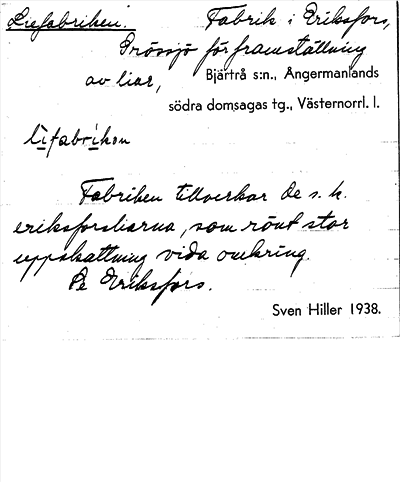 Liefabriken. Fabrik i Eriksfors,
Grössjö för framställning
av liar, Bjärtrå s:n., Ångermanlands
södra domsagas tg., Västernorrl. l.
lifabrikən
Fabriken tillverkar de s. k.
eriksforsliarna, som rönt stor
uppskattning vida omkring.
Se Eriksfors.
Sven Hiller 1938.